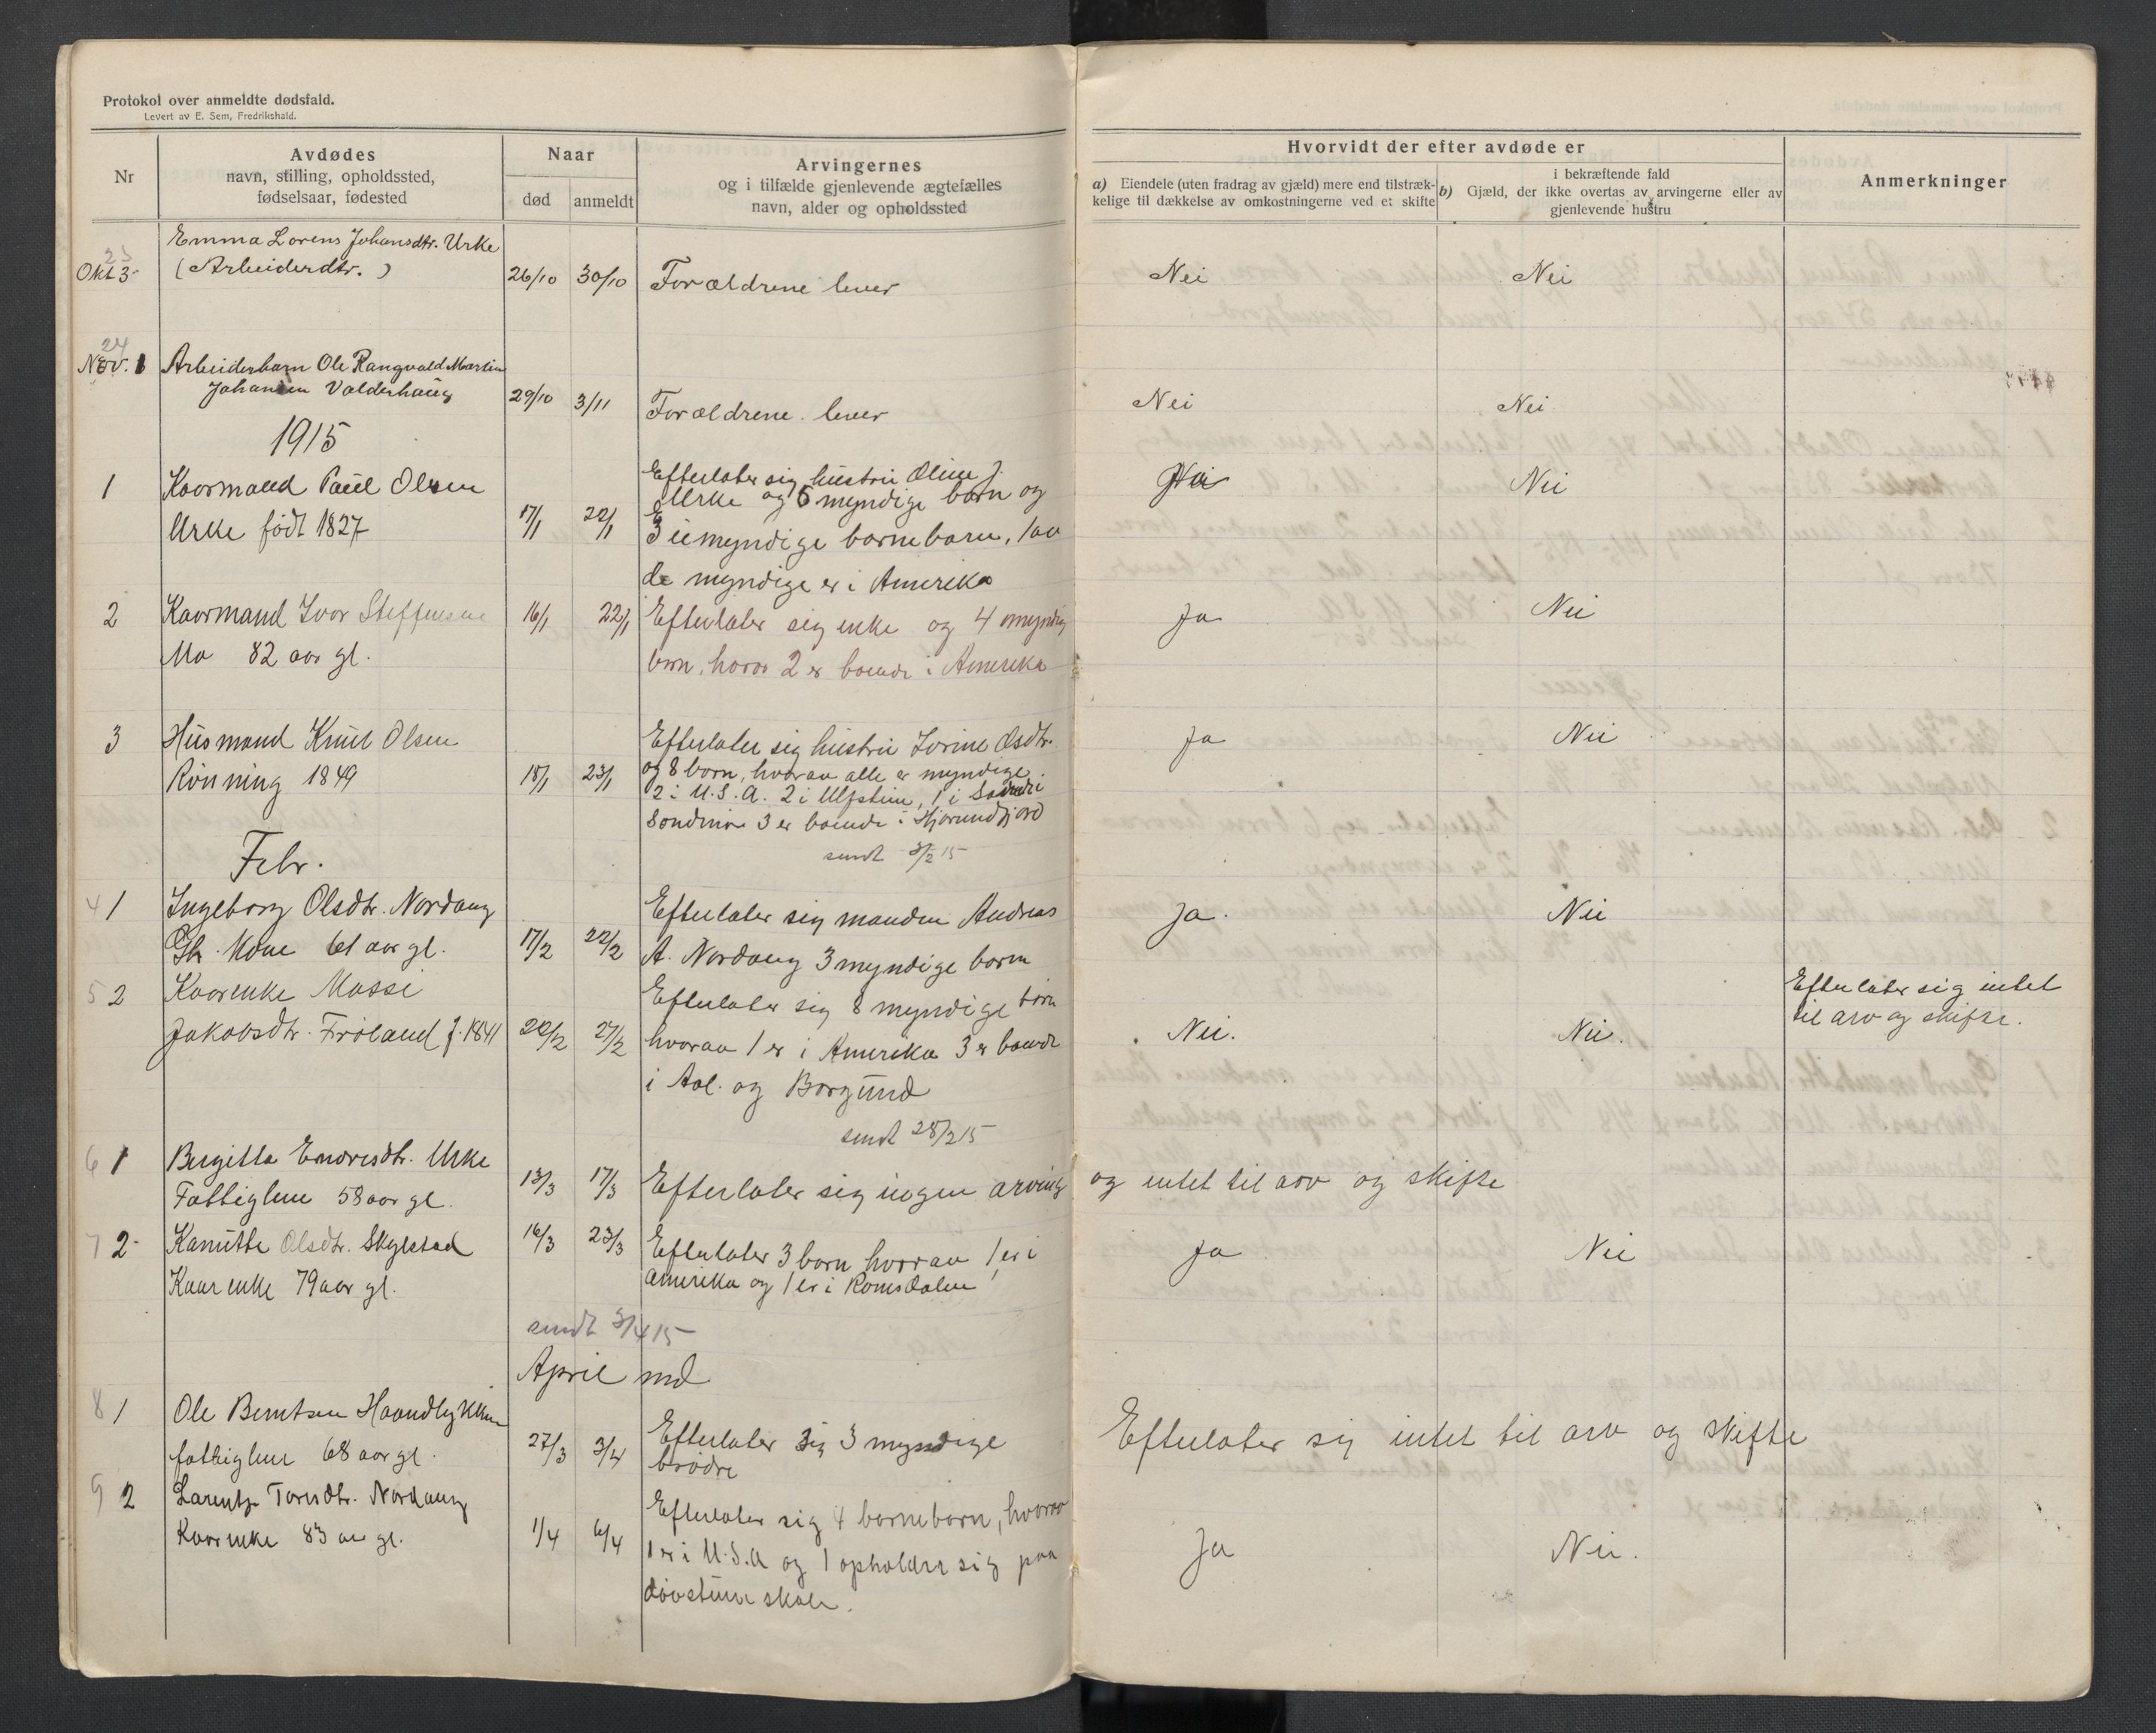 Protokol over anmeldte dødsfald.
Levert av E. Sem, Fredrikshald.
Nr
Avdødes
navn, stilling, opholdssted,
fødselsaar, fødested
Naar
død
anmeldt
Arvingernes
og i tilfælde gjenlevende ægtefælles
navn, alder og opholdssted
Hvorvidt der efter avdøde er
a) Eiendele (uten fradrag av gjæld) mere end tilstræk-
kelige til dækkelse av omkostningerne ved et skifte
i bekræftende fald
b) Gjæld, der ikke overtas av arvingerne eller av
gjenlevende hustru
Anmerkninger
23
Okt 3
Emma Lorens Johansdtr. Urke
(Arbeiderdtr.)
26/10 30/10 Forældrene lever
Nei
Nei
24
Nov. 1 Arbeiderbarn Ole Rangvald Martin
Johansen Valderhaug
29/10 3/11 Forældrene lever
Nei
Nei
1915
1 Kaarmand Paul Olsen
Urke født 1827
17/1 22/1
Efterlater sig hustru Oline J.
Urke og 6 myndige barn og
3 umyndige barnebarn, 1 av
de myndige er i Amerika
Ja
Nei
2 Kaarmand Ivar Steffensen
Mo 82 aar gl.
16/1 22/1 Efterlater sig enke og 4 myndig
barn, hvorav 2 er boende i Amerika
Ja
Nei
3 Husmand Knut Olsen
Rönning 1849
18/1 23/1
Efterlater sig hustru Jorine Olsdtr.
og 8 born, hvorav alle er myndige
2 i U.S.A. 2 i Ulfstein, 1 i Søndre
Søndmøre 3 er boende i Hjørundfjord
sendt 3/2 15
Ja
Nei
Febr.
4 1 Ingeborg Olsdtr. Nordang
Gb. Kone 61 aar gl.
17/2 22/2
Efterlater sig manden Andreas
A. Nordang 3 myndige barn
Ja.
Nei
5 2 Kaarenke Massi
Jakobsdtr. Fröland f. 1841
20/2 27/2
Efterlater sig 8 myndige børn
hvorav 1 er i Amerika 3 er boende
i Aal. og Borgund
sendt 28/2 15
Nei.
Nei.
Efterlater sig intet
til arv og skifte.
6 1 Bergitta Endresdtr. Urke
Fattiglem 58 aar gl.
13/3 17/3 Efterlater sig ingen arving og intet til arv og skifte
7 2 Kanutte Olsdtr. Skylstad
Kaarenke 79 aar gl.
16/3 23/3
Efterlater 3 barn hvorav 1 er i
Amerika og 1 er i Romsdalen
Ja
Nei
sendt 3/4 15
April md
8 1 Ole Berntsen Haandlykken
fattiglem 68 aar gl.
27/3 3/4
Efterlater sig 3 myndige
brødre
Efterlater sig intet til arv og skifte
9 2 Larentze Toresdtr. Nordang
Kaarenke 83 aar gl.
1/4 6/4
Efterlater sig 4 barnebarn, hvorav
1 er i U.S.A og 1 opholder sig paa
døvstum skole.
Ja
Nei.